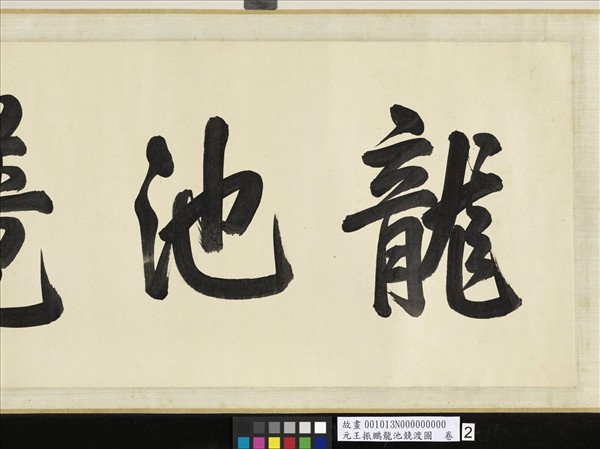 龍池
故畫 001013N000000000
元王振鵬龍池競渡圖 卷
2